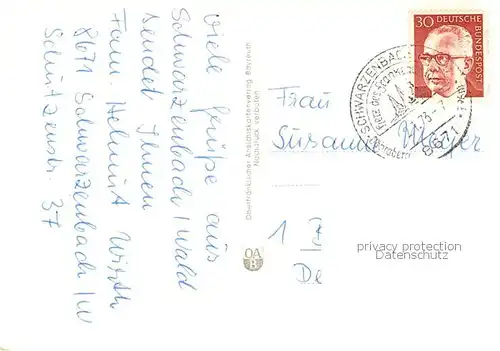 Viele Grüße aus
Schwarzenbach/Wald
sendet Ihnen
Fam. Helmut Wirth
8671 Schwarzenbach/W
Schützenstr. 37
Oberfränkischer Ansichtskartenverlag Bayreuth
Nachdruck verboten
OA
B
30 DEUTSCHE
BUNDESPOST
SCHWARZENBACH
8671
Frau
Susanne
1
privacy protection
Datenschutz